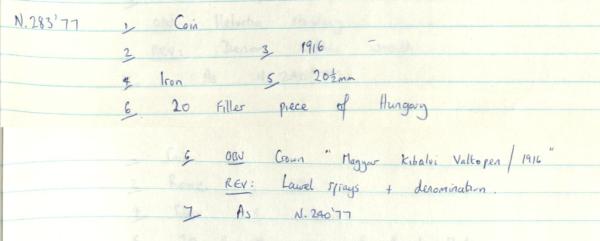 N.283'77 1 Coin
2 3 1916
4 Iron 5 20½mm
6 20 Filler piece of Hungary
6 OBV Crown "Magyar Kibalvi Valtopen / 1916"
REV: Laurel sprays + denomination.
7 As N.240'77